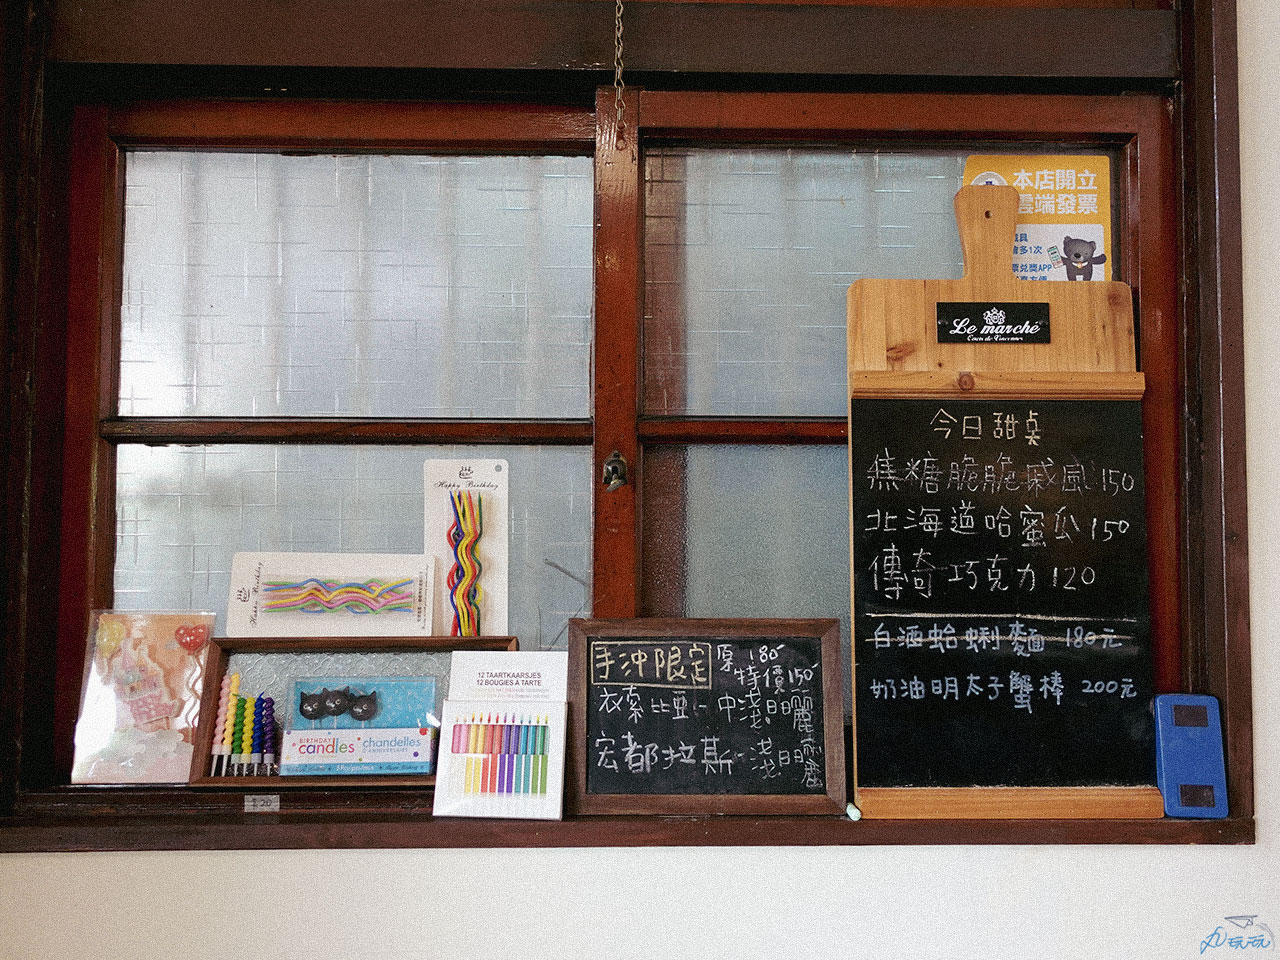 本店開立
雲端發票
多1次
兌獎APP
Le marché
Cours de Vincennes
今日甜桌
焦糖脆脆戚風 150
北海道哈蜜瓜 150
傳奇巧克力 120
白酒蛤蜊麵 180元
奶油明太子蟹棒 200元
手沖限定
原 180
特價150
衣索比亞-中淺日曬
宏都拉斯-淺日曬
Happy Birthday
Happy Birthday
BIRTHDAY
candles
chandelles
D'ANNIVERSAIRE
12 TAARTKAARSJES
12 BOUGIES A TARTE
$ 20